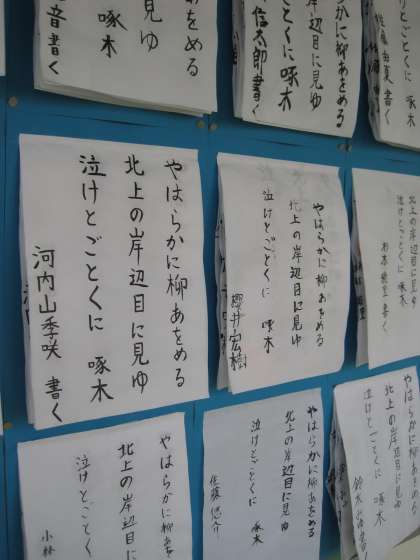 あをめる
見ゆ
啄木
音書く
柳あをめる
辺目に見ゆ
ごとくに 啄木
信太郎書く
りとごとくに 啄木
やはらかに柳あをめる
北上の岸辺目に見ゆ
泣けとごとくに 啄木
河内山季咲 書く
やはらかに柳あをめる
北上の岸辺目に見ゆ
泣けとごとくに 啄木
櫻井宏樹
北上の岸辺目に見ゆ
泣けとごとくに 啄木
やはらかに柳あをめる
北上の岸辺目に
泣けとごとく
小林
やはらかに柳あをめる
北上の岸辺目に見ゆ
泣けとごとくに 啄木
佐藤悠介
やはらかに柳あをめる
北上の岸辺目に見ゆ
泣けとごとくに 啄木